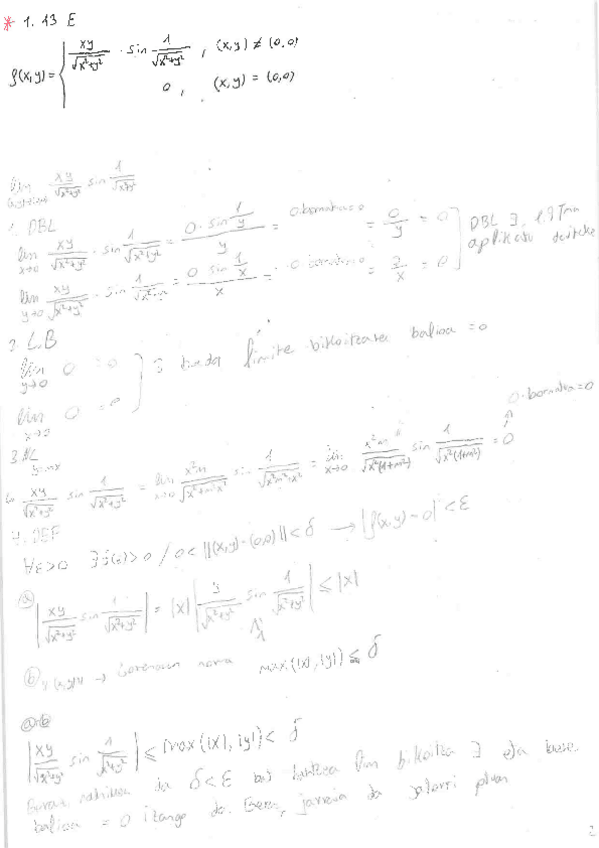 * 1.13 E
f(x,y) = { xy/√(x²+y²) · sin 1/√(x²+y²) , (x,y) ≠ (0,0)
0 , (x,y) = (0,0)
lim xy/√(x²+y²) sin 1/√(x²+y²)
1. DBL
lim x→0 xy/√(x²+y²) · sin 1/√(x²+y²) = 0 · sin 1/y / y = 0·bornatua=0 = 0/y = 0
lim y→0 xy/√(x²+y²) · sin 1/√(x²+y²) = 0 sin 1/x / x = 0·bornatua=0 = 0/x = 0
DBL ∃, 1.9 Tma
aplikatu daiteke
2. L.B
lim y→0 0 = 0
lim x→0 0 = 0
∃ limite bikoitzaren balioa = 0
3. NL
y=mx
xy/√(x²+y²) sin 1/√(x²+y²) = lim x→0 x²m/√(x²+m²x²) sin 1/√(x²m²+x²) = lim x→0 x²m/√(x²(1+m²)) sin 1/√(x²(1+m²)) = 0
0·bornatua=0
4. DEF
∀ε>0 ∃δ(ε)>0 / 0<||(x,y)-(0,0)||<δ → |f(x,y)-0|<ε
ⓐ |xy/√(x²+y²) sin 1/√(x²+y²)| = |x| |y/√(x²+y²) sin 1/√(x²+y²)| ≤ |x|
ⓑ → norma max(|x|,|y|) ≤ δ
|xy/√(x²+y²) sin 1/√(x²+y²)| ≤ max(|x|,|y|) < δ
da δ<ε bat lim bikoitza ∃ eta bere
balioa = 0 izango da. Beraz, jarraia da jatorri
2